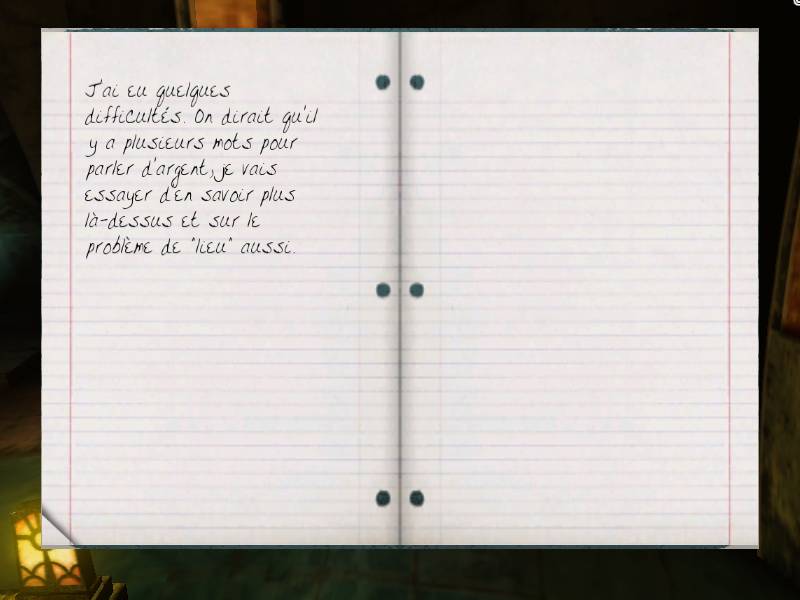 J'ai eu quelques
difficultés. On dirait qu'il
y a plusieurs mots pour
parler d'argent, je vais
essayer d'en savoir plus
là-dessus et sur le
problème de "lieu" aussi.